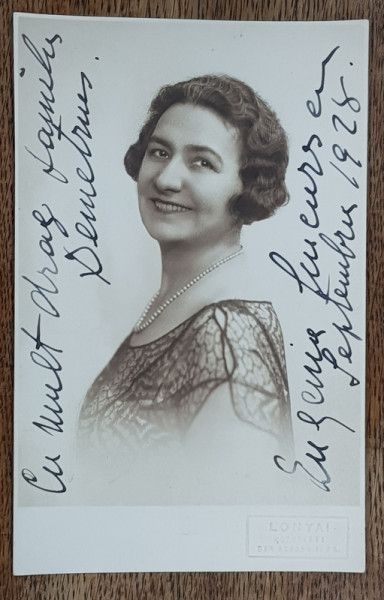 Cu mult drag familiei
Demetrius.
Eugenia
Septembrie 1928.
LONYAI